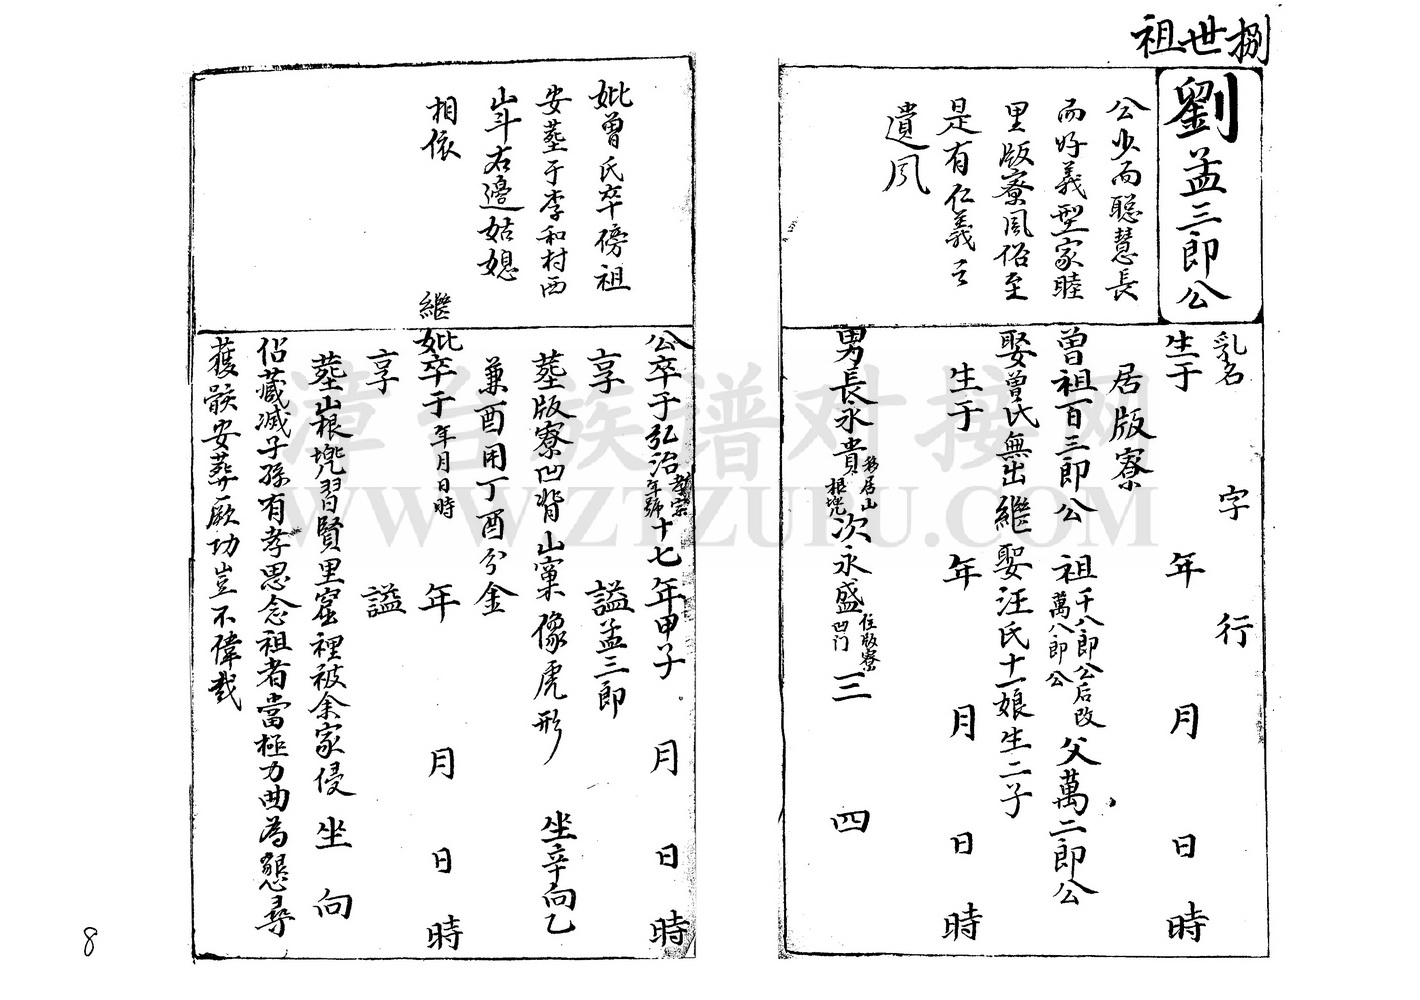 捌世祖
劉孟三郎公
公少而聰慧長
而好義型家睦
里版寮風俗至
是有仁義之
遺風
乳名 字 行
生于 年 月 日 時
居版寮
曾祖百三郎公 祖千八郎公后改萬八郎公 父萬二郎公
娶曾氏無出繼娶汪氏十一娘生二子
生于 年 月 日 時
男長永貴移居山根兠 次永盛住版寮凹门 三 四
妣曾氏卒傍祖
安塟于李和村西
山斗右邊姑媳
相依
公卒于弘治孝宗年號十七年甲子 月 日 時
享 謚孟三郎
塟版寮凹背山窠像虎形 坐辛向乙
兼酉用丁酉分金
繼妣卒于年月日時 年 月 日 時
享 謚
塟山根兠習賢里窟裡被余家侵 坐 向
佔藏滅子孫有孝思念祖者當極力曲為懇尋
獲骸安葬厥功豈不偉哉
8
漳台族谱对接网
WWW.ZTZUPU.COM